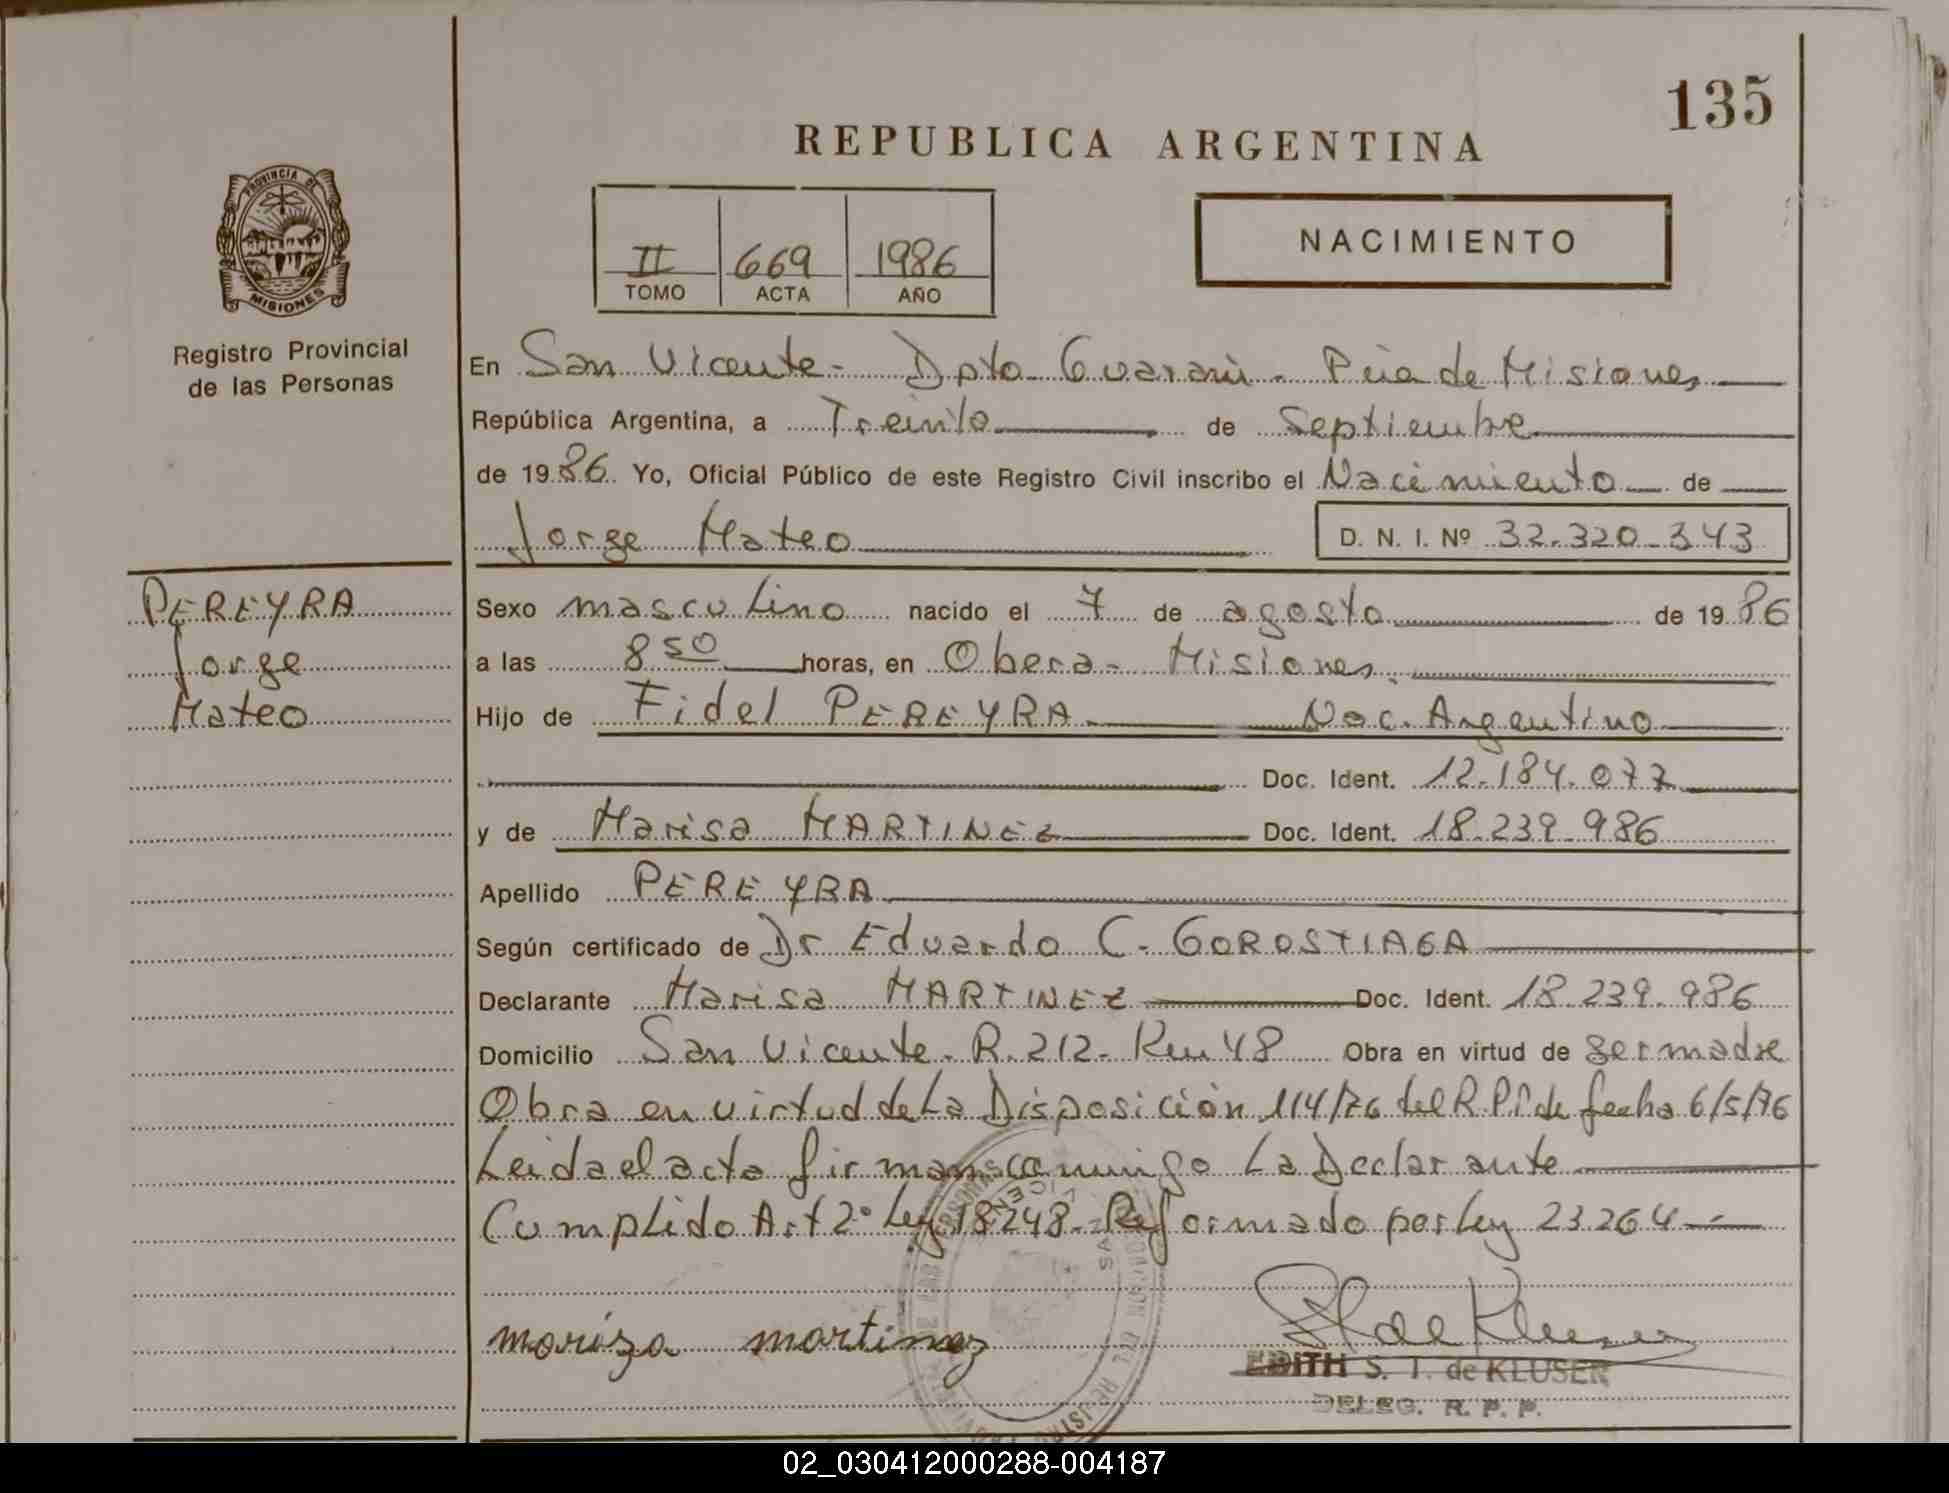 135
REPUBLICA ARGENTINA
PROVINCIA DE
MISIONES
II 669 1986
TOMO ACTA AÑO
NACIMIENTO
Registro Provincial
de las Personas
En San Vicente - Dpto Guaraní - Pcia de Misiones
República Argentina, a Treinta de Septiembre
de 1986 Yo, Oficial Público de este Registro Civil inscribo el Nacimiento de
Jorge Mateo D. N. I. Nº 32.320.343
PEREYRA
Jorge
Mateo
Sexo masculino nacido el 7 de agosto de 1986
a las 8 50 horas, en Obera - Misiones
Hijo de Fidel PEREYRA Nac. Argentino
Doc. Ident. 12.184.077
y de Marisa MARTINEZ Doc. Ident. 18.239.986
Apellido PEREYRA
Según certificado de Dr Eduardo C. GOROSTIAGA
Declarante Marisa MARTINEZ Doc. Ident. 18.239.986
Domicilio San Vicente. R. 212 - Km 48 Obra en virtud de ser madre
Obra en virtud de La Disposición 114/76 del R.P.P. de fecha 6/5/76
Leida el acta firman conmigo La Declarante
Cumplido Art 2º Ley 18248 - Reformado por Ley 23.264
mariza martinez
EDITH S. T. de KLUSER
DELEG. R. P. P.
02_030412000288-004187